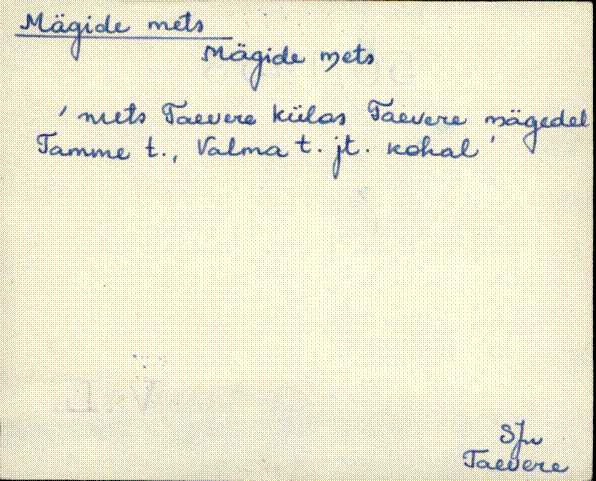 Mägide mets
Mägide mets
' mets Taevere külas Taevere mägedel
Tamme t., Valma t. jt. kohal '
SJn
Taevere